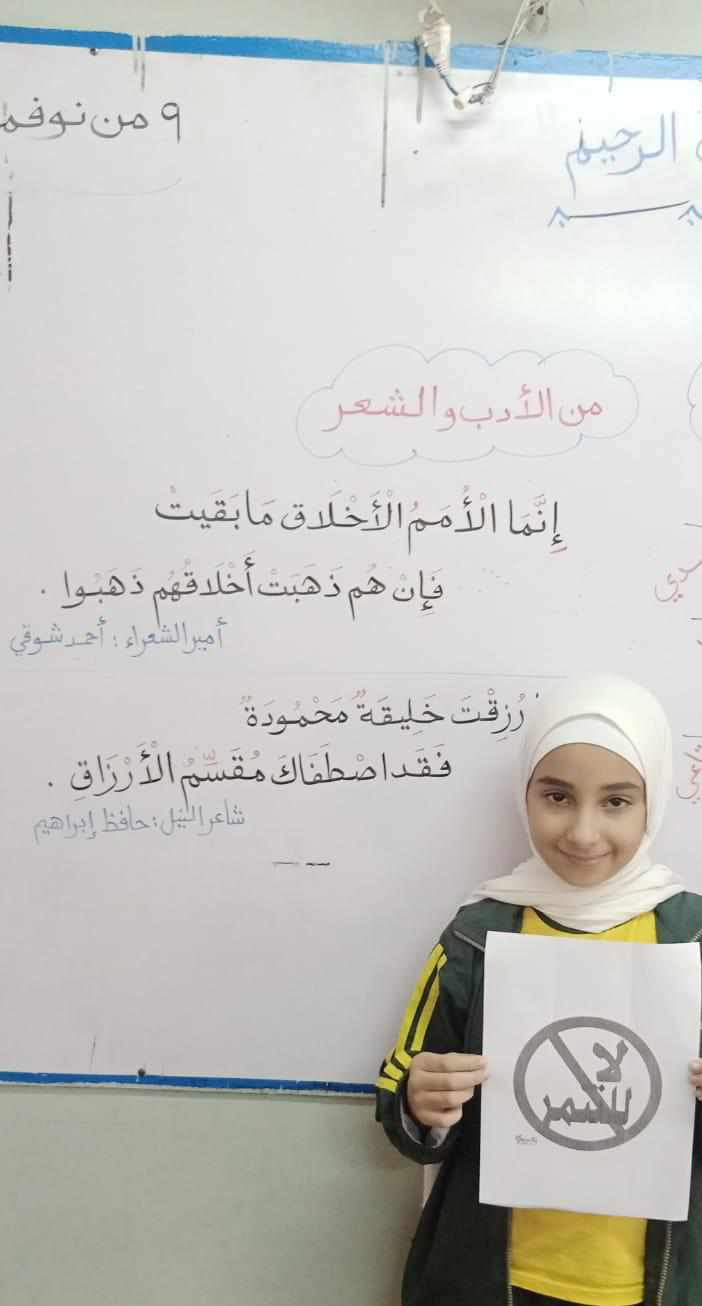 ة الرحيم
٩ من نوفم
من الأدب والشعر
إِنَّمَا الْأُمَمُ الْأَخْلَاق مَا بَقَيتْ
فَإِنْ هُم ذَهَبَتْ أَخْلَاقُهُم ذَهَبُوا .
أمير الشعراء : أحمد شوقي
رُزِقْتَ خَلِيقَةً مَحْمُودَةً
فَقَد اصْطَفَاكَ مُقَسِّمُ الْأَرْزَاقِ .
شاعر النيل : حافظ إبراهيم
لا
للتنمر